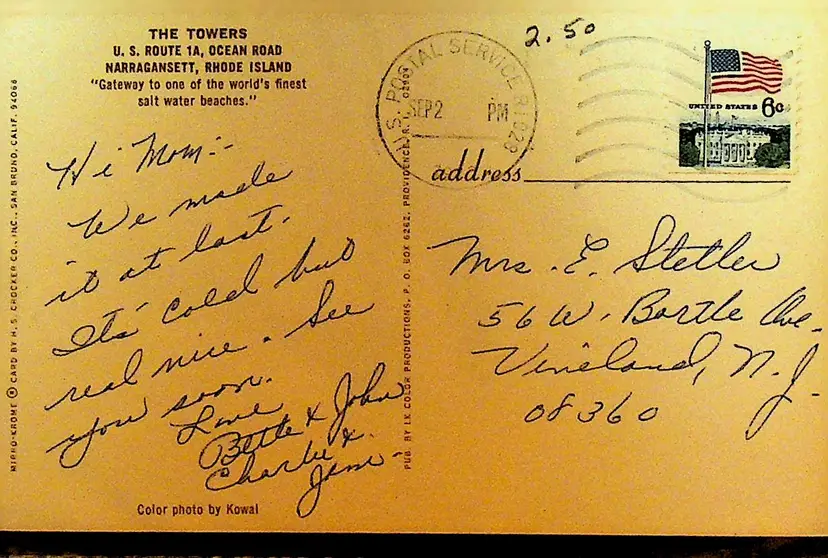 THE TOWERS
U. S. ROUTE 1A, OCEAN ROAD
NARRAGANSETT, RHODE ISLAND
"Gateway to one of the world's finest
salt water beaches."
2.50
U.S. POSTAL SERVICE R.I. 029
SEP 2 PM
UNITED STATES 6c
address
Hi Mom:-
We made
it at last.
Its' cold but
real nice. See
you soon.
Love
Bette & John
Charlie &
Jane-
Mrs. E. Stetler
56 W. Bartle Ave.
Vineland, N.J.
08360
Color photo by Kowal
MIRRO-KROME ® CARD BY H. S. CROCKER CO., INC., SAN BRUNO, CALIF. 94066
PUB. BY LK COLOR PRODUCTIONS, P. O. BOX 6262, PROVIDENCE, R. I. 02904